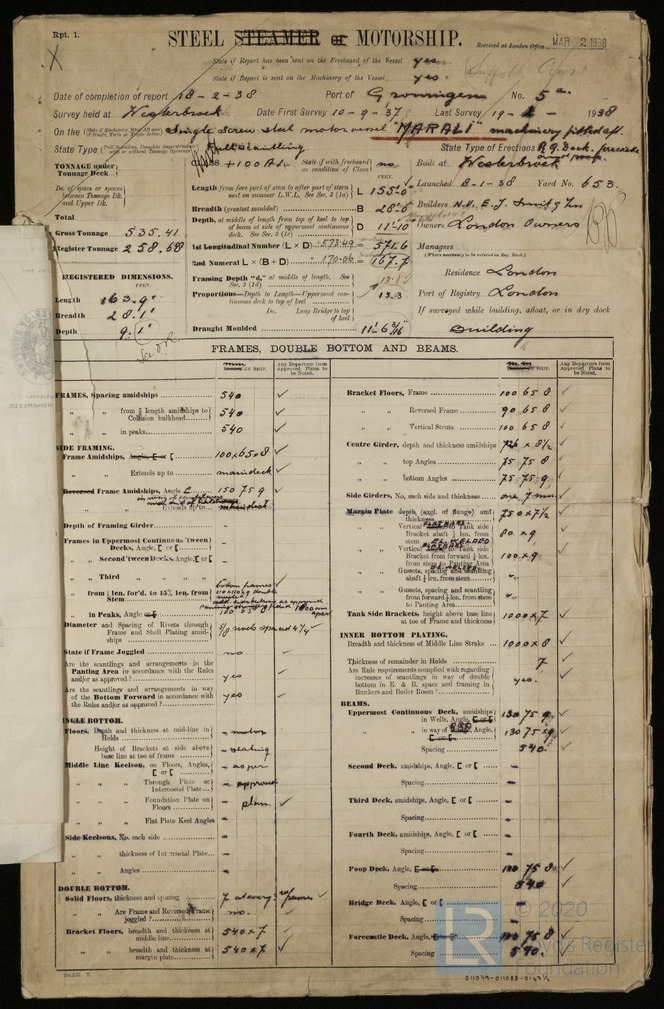 Rpt. 1.
STEEL STEAMER or MOTORSHIP.
Received at London Office MAR 2 1938
State if Report has been sent on the Freeboard of the Vessel yes
State if Report is sent on the Machinery of the Vessel yes.
Date of completion of report 18-2-38 Port of Groningen No. 5a
Survey held at Westerbroek Date First Survey 10-9-37 Last Survey 19- 1938
On the Single screw steel motorvessel "MARALI" machinery fitted aft.
State Type full scantling State Type of Erections R.Q. Deck, forecastle
TONNAGE under Tonnage Deck
CLASS +100A1. State if with freeboard as condition of Class no Built at Westerbroek
Do. of space or spaces between Tonnage Dk. and Upper Dk.
Length from fore part of stem to after part of stern post on summer L.W.L. See Sec. 3 (1a) L 155'0" Launched 8-1-38 Yard No. 653
Total
Breadth (greatest moulded) B 28'0" Builders N.V. E.J. Smit & Zn
Gross Tonnage 535.41
Depth, at middle of length from top of keel to top of beam at side of uppermost continuous deck. See Sec. 3 (1c) D 11'10 Owners London Owners
Register Tonnage 258.68
1st Longitudinal Number (L × D) 571.6 Managers
2nd Numeral L × (B + D) 167.7
REGISTERED DIMENSIONS.
FEET.
Framing Depth "d," at middle of length. See Sec. 3 (1d) Residence London
Length 163.9'
Proportions—Depth to Length—Uppermost continuous deck to top of keel 13.3 Port of Registry London
Breadth 28.1'
Do. Long Bridge to top of keel If surveyed while building, afloat, or in dry dock
Depth 9.1'
Draught Moulded 11'-6 3/16" Building
FRAMES, DOUBLE BOTTOM AND BEAMS.
Any Departure from Approved Plans to be Noted.
Any Departure from Approved Plans to be Noted.
FRAMES, Spacing amidships 540 ✓
" " from 3/5 length amidships to Collision bulkhead 540 ✓
" " in peaks 540 ✓
SIDE FRAMING.
Frame Amidships, Angle, [ or [ 100×65·8 ✓
" " Extends up to maindeck ✓
Reversed Frame Amidships, Angle L 150 75 9 ✓
" " Extends up to
Depth of Framing Girder –
Frames in Uppermost Continuous 'tween Decks, Angle, [ or [ –
" " Second 'tween Decks, Angle, [ or [ –
" " Third " " –
" " from 1/4 len. for'd. to 15% len. from Stem bottom frames
" " in Peaks, Angle or [
Diameter and Spacing of Rivets through Frame and Shell Plating amidships
State if Frame Joggled no ✓
Are the scantlings and arrangements in the Panting Area in accordance with the Rules and/or as approved? yes ✓
Are the scantlings and arrangements in way of the Bottom Forward in accordance with the Rules and/or as approved? yes ✓
SINGLE BOTTOM.
Floors, Depth and thickness at mid-line in Holds – motor
Height of Brackets at side above base line at toe of frame – seating
Middle Line Keelson, on Floors, Angles, [ or [ – as per
" " Through Plate or Intercostal Plate – approved
" " Foundation Plate on Floors – plan. ✓
" " Flat Plate Keel Angles –
Side Keelsons, No. each side –
" " thickness of Intercostal Plate –
" " Angles –
DOUBLE BOTTOM.
Solid Floors, thickness and spacing 7 at every 2nd frame ✓
" " Are Frame and Reversed Frame joggled? no. ✓
Bracket Floors, breadth and thickness at middle line 540×7 ✓
" " breadth and thickness at margin plate 540×7 ✓
Bracket Floors, Frame 100 65 8 ✓
" " Reversed Frame 90 65 8 ✓
" " Vertical Struts 100 65 8 ✓
Centre Girder, depth and thickness amidships 726 × 8½ ✓
" " top Angles 75 75 8 ✓
" " bottom Angles 75 75 9 ✓
Side Girders, No. each side and thickness one, 7 mm ✓
Margin Plate depth (excl. of flange) and thickness 750×7½ ✓
80 × 9 ✓
100×9 ✓
" Gussets, spacing and scantling abaft ¼ len. from stem
" Gussets, spacing and scantling from forward ¼ len. from stem to Panting Area
Tank Side Brackets, height above base line at toe of Frame and thickness 1000×7 ✓
INNER BOTTOM PLATING.
Breadth and thickness of Middle Line Strake 1000×8 ✓
Thickness of remainder in Holds 7 ✓
Are Rule requirements complied with regarding increases of scantlings in way of double bottom in E. & B. space and framing in Bunkers and Boiler Room? yes. ✓
BEAMS.
Uppermost Continuous Deck, amidships in Wells, Angle, [ or [ 130 75 9 ✓
" " in way of RQD, Angle, [ or [ 130 75×9 ✓
Spacing 540 ✓
Second Deck, amidships, Angle, [ or [ –
Spacing –
Third Deck, amidships, Angle, [ or [ –
Spacing –
Fourth Deck, amidships, Angle, [ or [ –
Spacing –
Poop Deck, Angle, [ or [ 100 75 8 ✓
Spacing 540 ✓
Bridge Deck, Angle, [ or [ –
Spacing –
Forecastle Deck, Angle, [ or [ 100 75 8 ✓
Spacing 540. ✓
© 2020
Lloyd's Register
Foundation